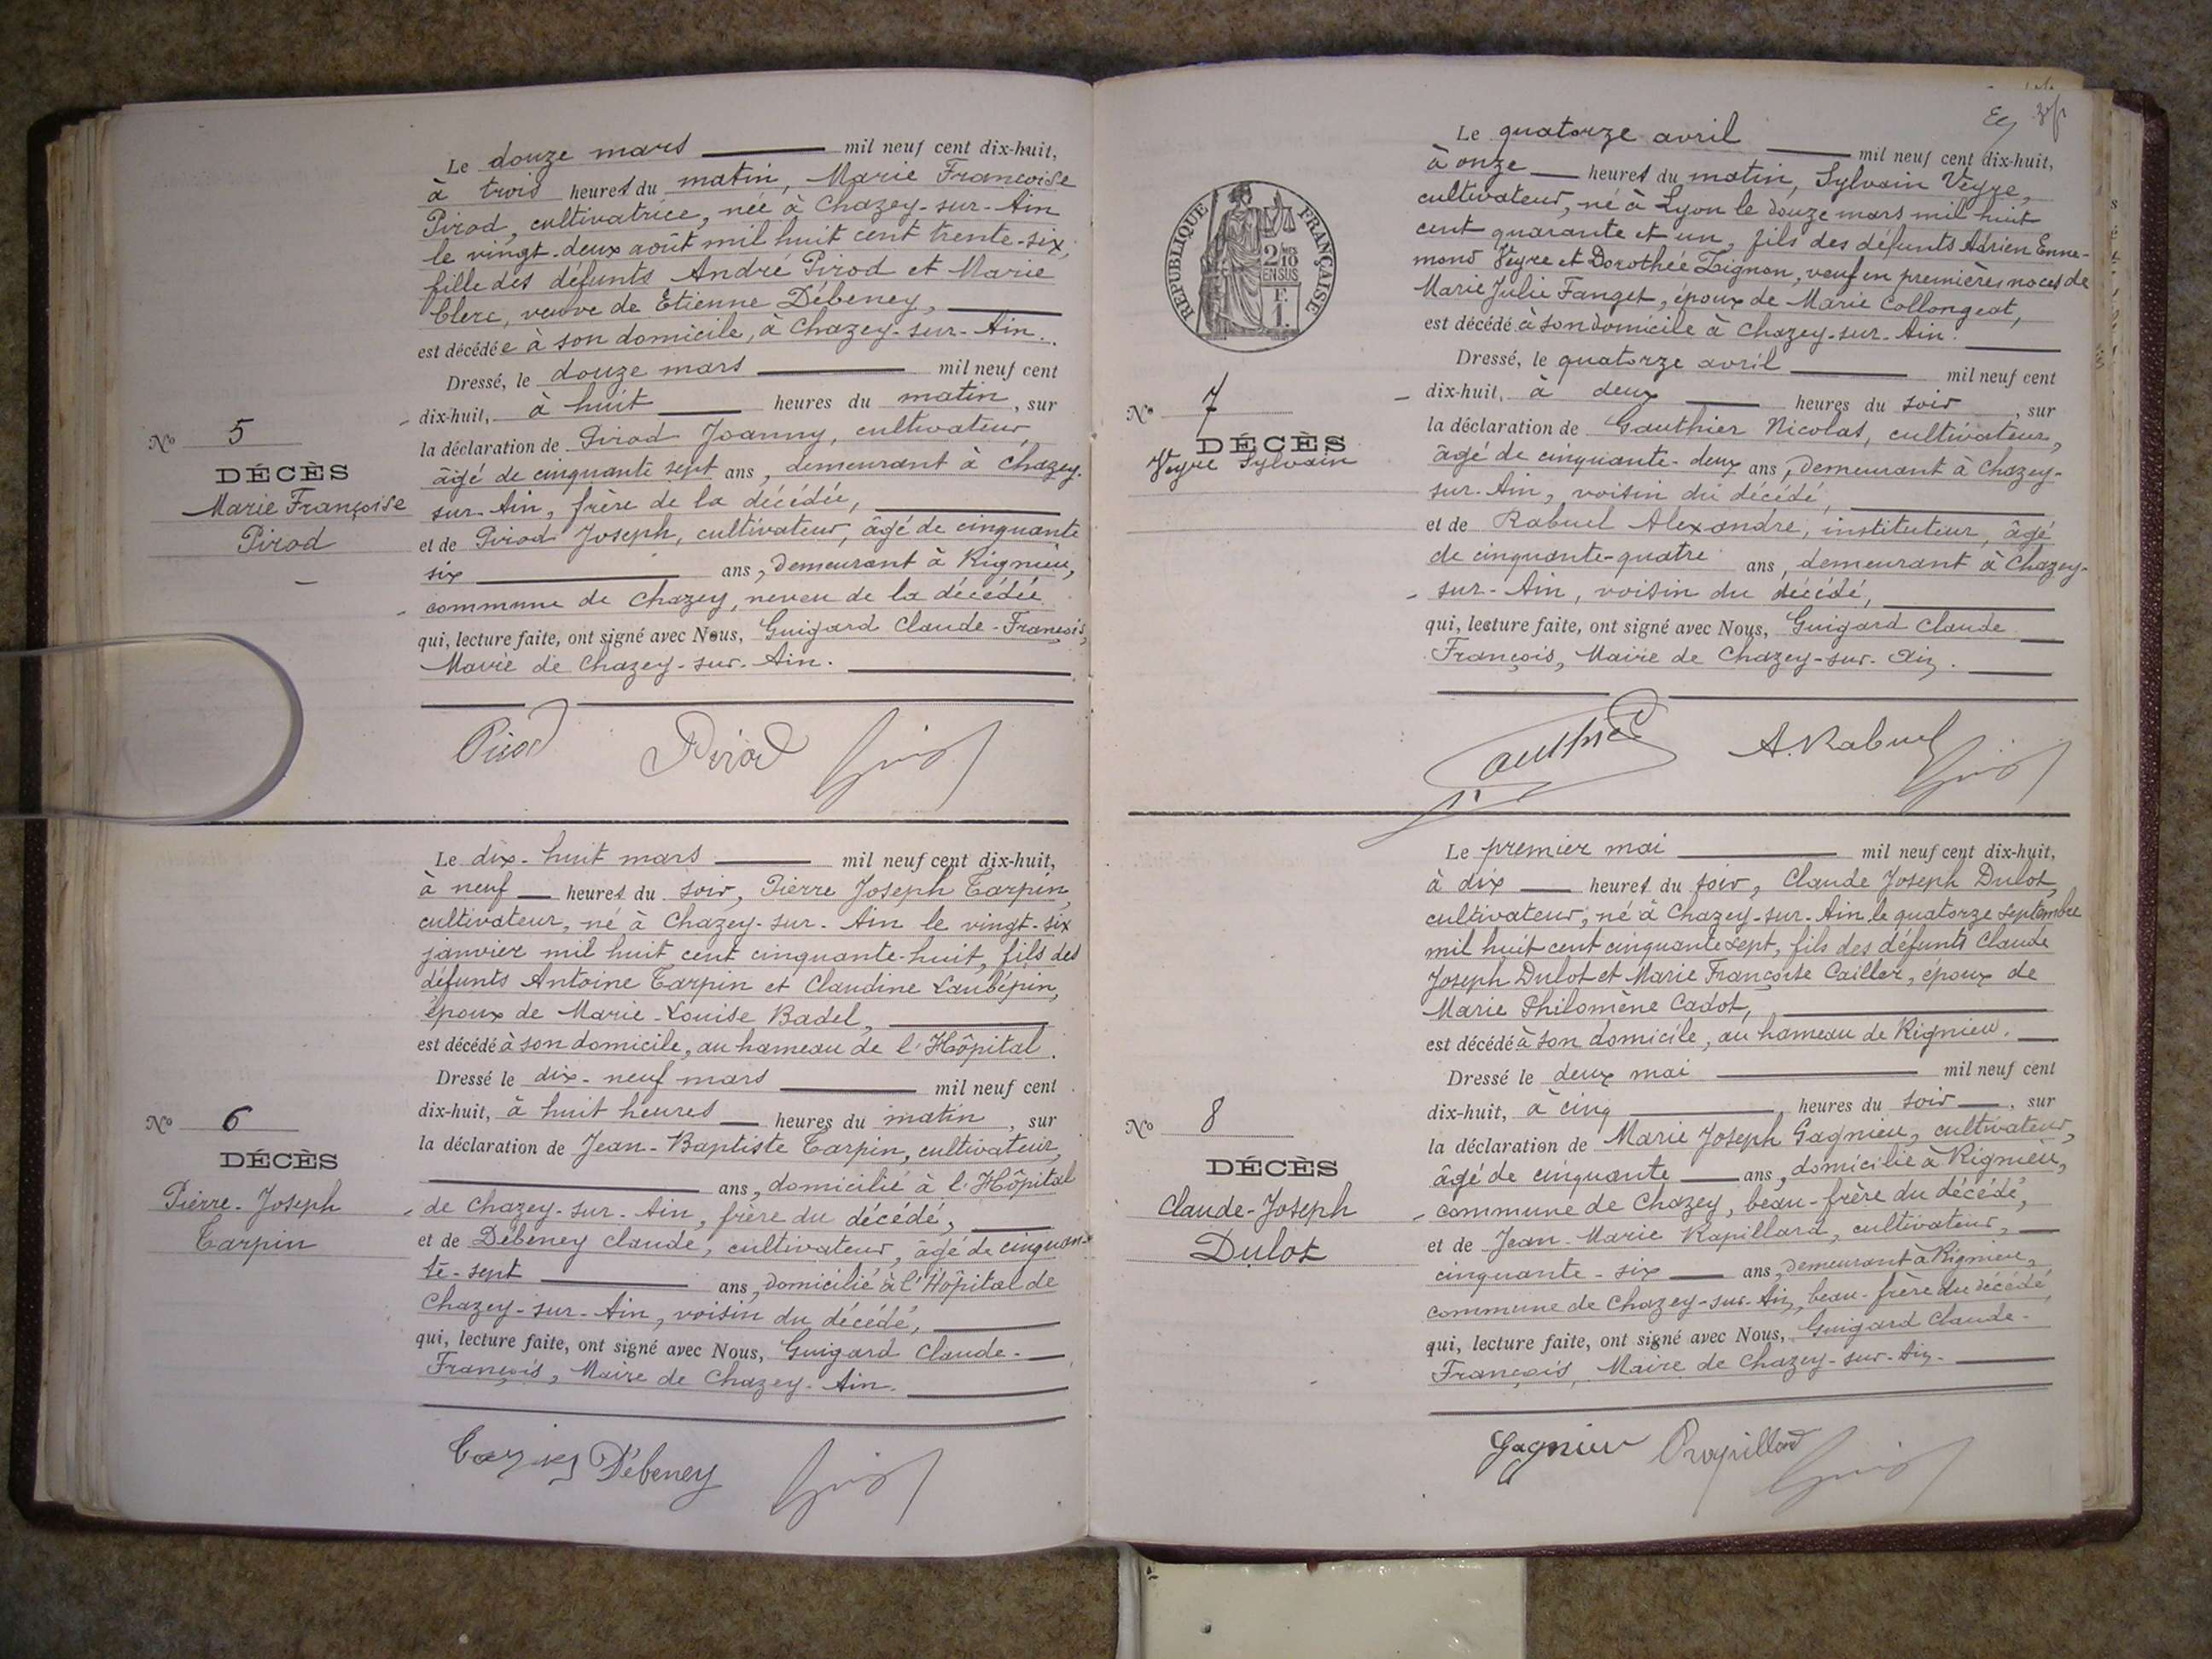 Le douze mars mil neuf cent dix-huit,
à trois heures du matin, Marie Françoise
Pirod, cultivatrice, née à Chazey-sur-Ain
le vingt-deux août mil huit cent trente-six,
fille des défunts André Pirod et Marie
Clerc, veuve de Etienne Débeney,
est décédée à son domicile, à Chazey-sur-Ain.
Dressé, le douze mars mil neuf cent
dix-huit, à huit heures du matin, sur
la déclaration de Pirod Joanny, cultivateur,
âgé de cinquante sept ans, demeurant à Chazey-
sur-Ain, frère de la décédée,
et de Pirod Joseph, cultivateur, âgé de cinquante
six ans, demeurant à Rignieu,
commune de Chazey, neveu de la décédée
qui, lecture faite, ont signé avec Nous, Guigard Claude-François,
Maire de Chazey-sur-Ain.
N° 5
DÉCÈS
Marie Françoise
Pirod
Pirod Pirod
Le dix-huit mars mil neuf cent dix-huit,
à neuf heures du soir, Pierre Joseph Tarpin,
cultivateur, né à Chazey-sur-Ain le vingt-six
janvier mil huit cent cinquante-huit, fils des
défunts Antoine Tarpin et Claudine Laubépin,
époux de Marie-Louise Badel,
est décédé à son domicile, au hameau de l'Hôpital.
Dressé le dix-neuf mars mil neuf cent
dix-huit, à huit heures heures du matin, sur
la déclaration de Jean-Baptiste Tarpin, cultivateur,
ans, domicilié à l'Hôpital
de Chazey-sur-Ain, frère du décédé,
et de Débeney Claude, cultivateur, âgé de cinquan-
te-sept ans, domicilié à l'Hôpital de
Chazey-sur-Ain, voisin du décédé,
qui, lecture faite, ont signé avec Nous, Guigard Claude-
François, Maire de Chazey-Ain.
N° 6
DÉCÈS
Pierre-Joseph
Tarpin
Tarpin Débeney
Le quatorze avril mil neuf cent dix-huit,
à onze heures du matin, Sylvain Veyre,
cultivateur, né à Lyon le douze mars mil huit
cent quarante et un, fils des défunts Adrien Enne-
mond Veyre et Dorothée Zignon, veuf en premières noces de
Marie Julie Fanget, époux de Marie Collongeat,
est décédé à son domicile à Chazey-sur-Ain.
Dressé, le quatorze avril mil neuf cent
dix-huit, à deux heures du soir, sur
la déclaration de Gauthier Nicolas, cultivateur,
âgé de cinquante-deux ans, demeurant à Chazey-
sur-Ain, voisin du décédé,
et de Rabuel Alexandre, instituteur, âgé
de cinquante-quatre ans, demeurant à Chazey-
sur-Ain, voisin du décédé,
qui, lecture faite, ont signé avec Nous, Guigard Claude
François, Maire de Chazey-sur-Ain.
RÉPUBLIQUE FRANÇAISE
2/10
EN SUS
F.
1.
N° 7
DÉCÈS
Veyre Sylvain
A. Rabuel
Le premier mai mil neuf cent dix-huit,
à dix heures du soir, Claude Joseph Dulot,
cultivateur, né à Chazey-sur-Ain le quatorze septembre
mil huit cent cinquante sept, fils des défunts Claude
Joseph Dulot et Marie Françoise Cailler, époux de
Marie Philomène Cadot,
est décédé à son domicile, au hameau de Rignieu.
Dressé le deux mai mil neuf cent
dix-huit, à cinq heures du soir, sur
la déclaration de Marie Joseph Gagnieu, cultivateur,
âgé de cinquante ans, domicilié à Rignieu,
commune de Chazey, beau-frère du décédé,
et de Jean-Marie Rapillard, cultivateur,
cinquante-six ans, demeurant à Rignieu,
commune de Chazey-sur-Ain, beau-frère du décédé
qui, lecture faite, ont signé avec Nous, Guigard Claude-
François, Maire de Chazey-sur-Ain.
N° 8
DÉCÈS
Claude-Joseph
Dulot
Gagnieu Rapillard